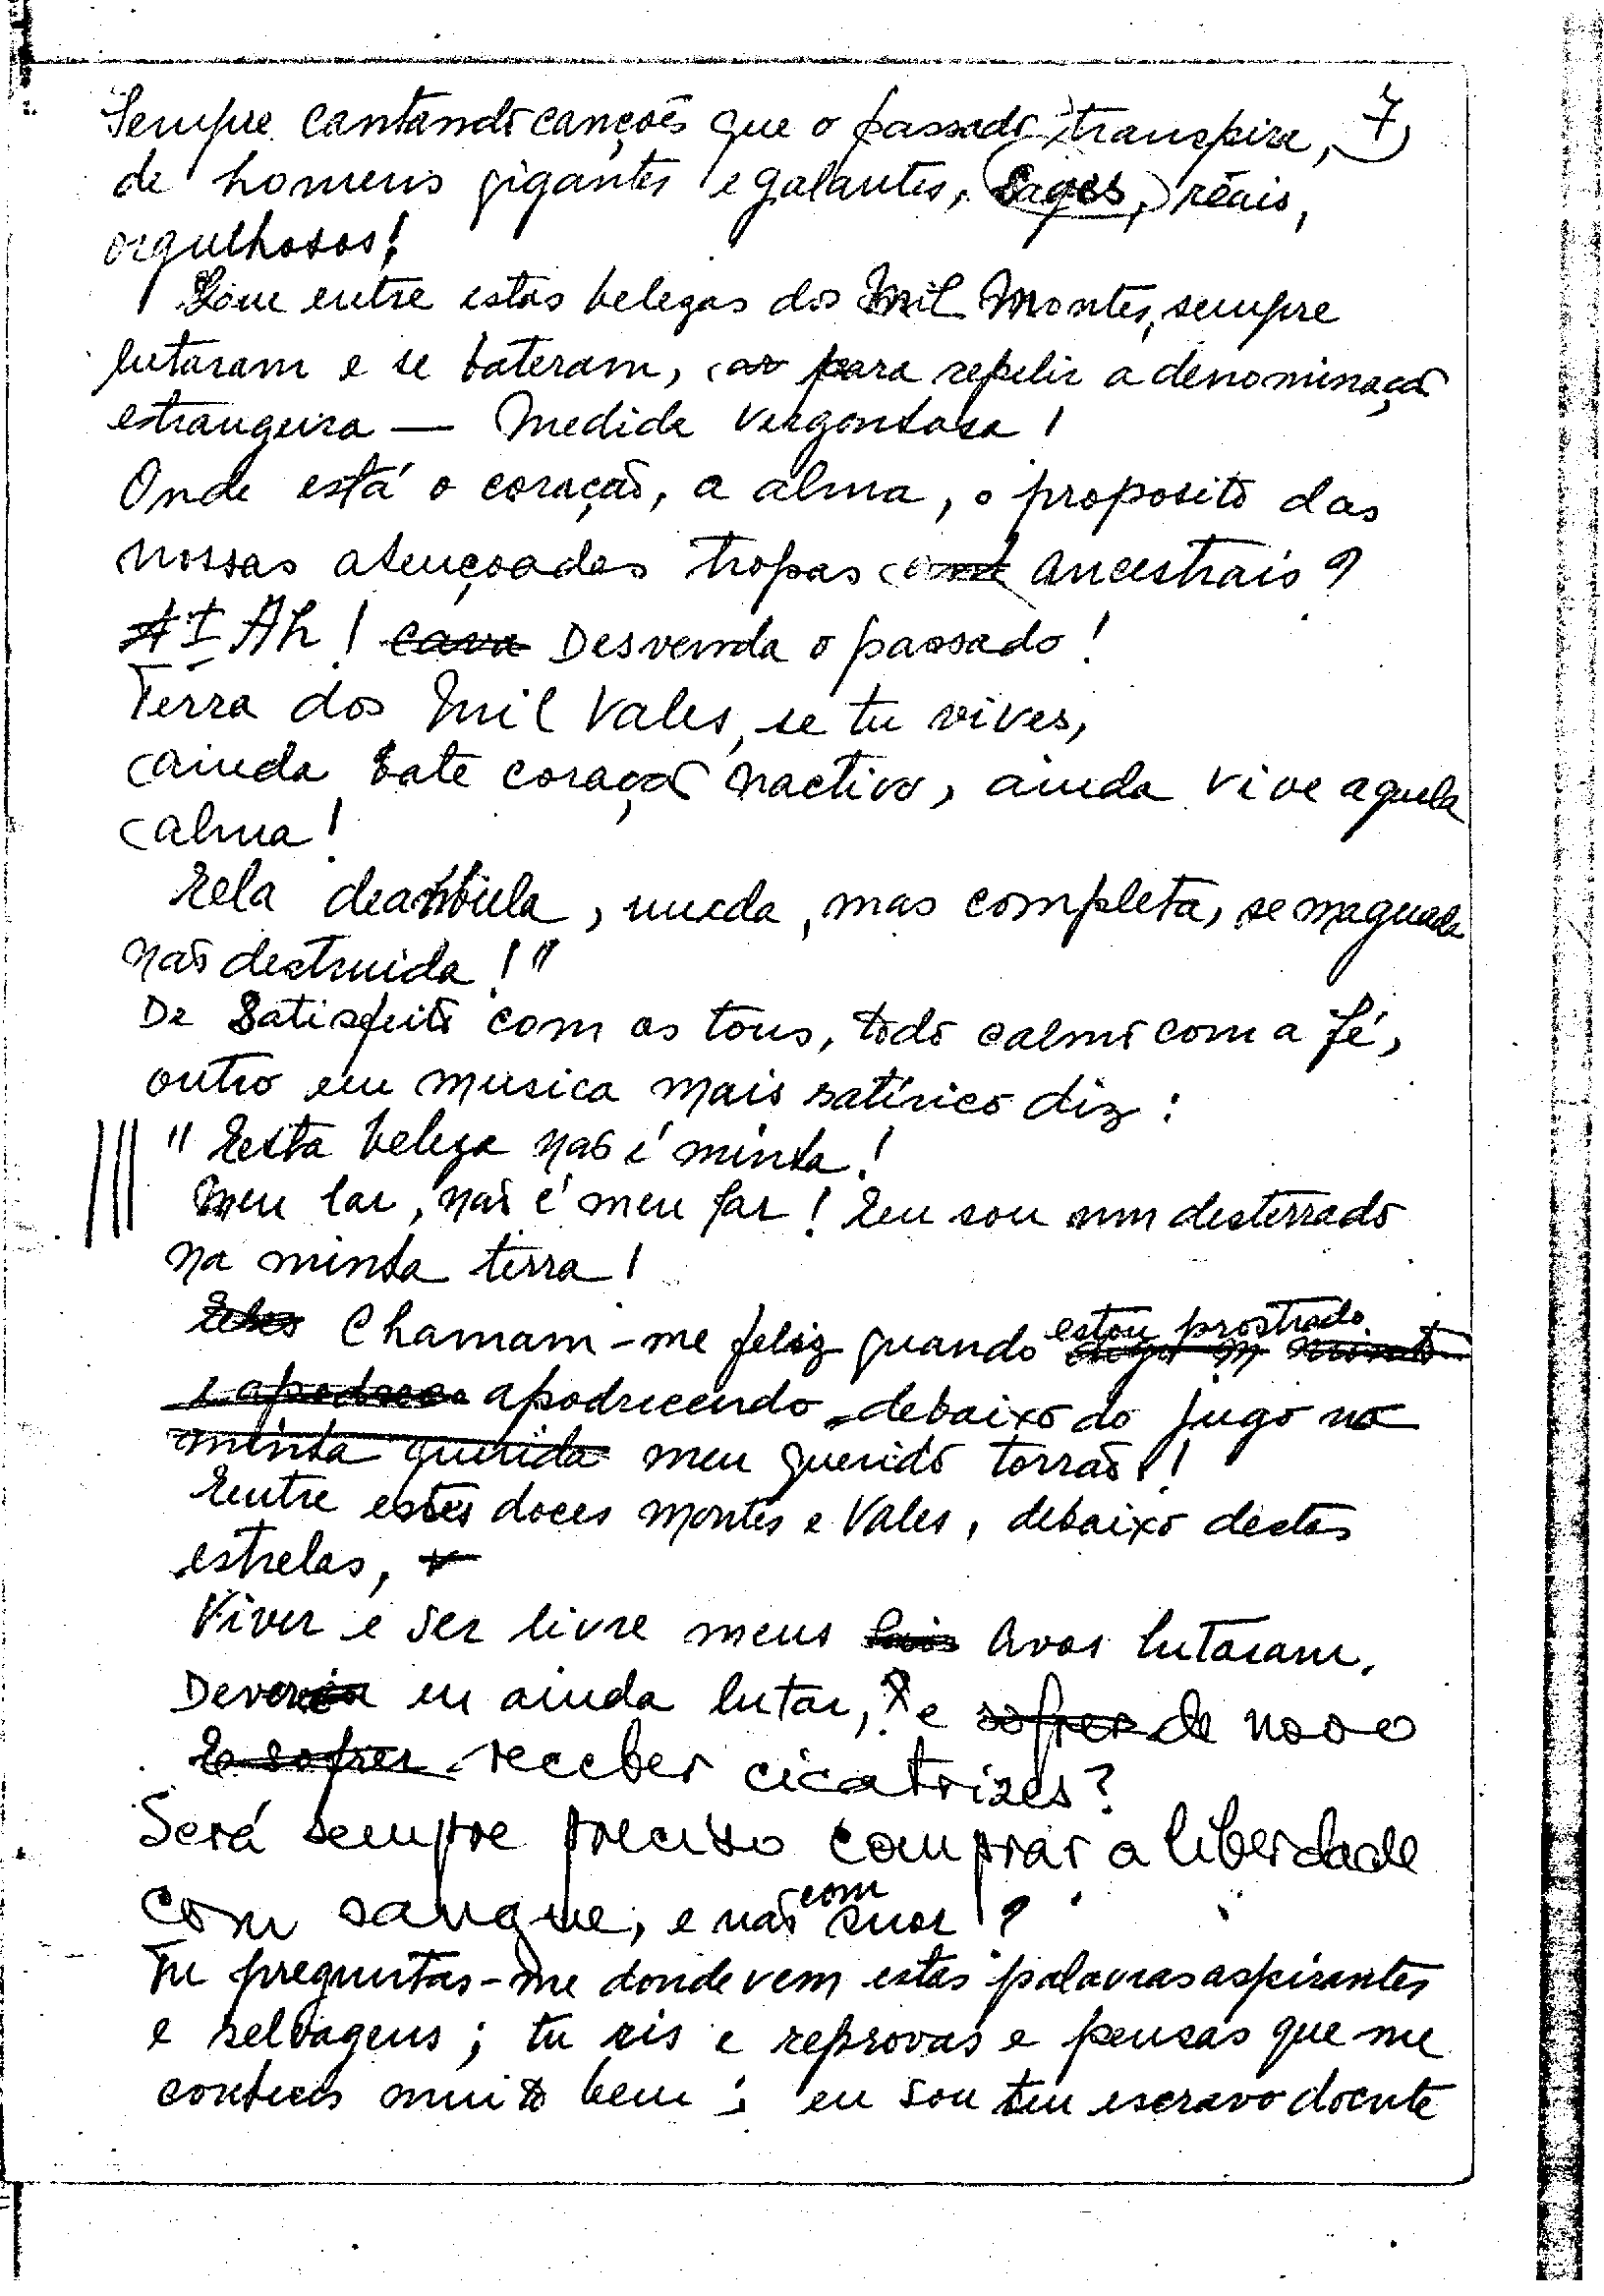 Sempre cantando canções que o passado transpira, 7
de homens gigantes e galantes, Sages, reais,
orgulhosos!
Em entre estas belezas dos Mil Montes, sempre
lutaram e se bateram, para repelir a denominação
estrangeira — Medida vergonhosa!
Onde está o coração, a alma, o proposito das
nossas abençoadas tropas ancestrais?
Ah! cava Desvenda o passado!
Terra dos Mil Vales, se tu vives,
ainda bate coração nactivo, ainda vive aquela
alma!
Ela deambula, muda, mas completa, se maguada
não destruida!"
De Satisfeito com os tons, todo calmo com a fé,
outro em musica mais satírico diz:
"Esta beleza não é minha!
Meu lar, não é meu lar! Eu sou um desterrado
na minha terra!
Eles Chamam-me feliz quando estou prostrado
e apodreco apodrecendo debaixo do jugo no
minha querida meu querido torrão!!
Entre estes doces montes e Vales, debaixo destas
estrelas,
Viver e ser livre meus Avos lutaram.
Deverei eu ainda lutar,? e sofrer de novo
E sofrer receber cicatrizes?
Será sempre preciso comprar a liberdade
com sangue, e não com suor?
Tu preguntas-me donde vem estas palavras aspirantes
e selvagens; tu ris e reprovas e pensas que me
conheces muito bem; eu sou teu escravo doente